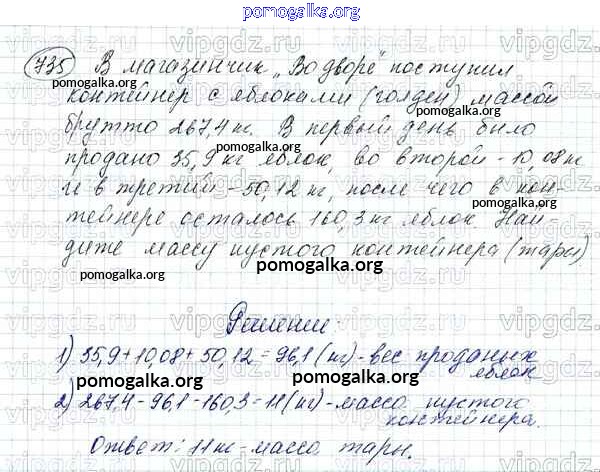 pomogalka.org
735 В магазинчик „Во дворе" поступил
pomogalka.org
контейнер с яблоками (голден) массой
pomogalka.org
брутто 267,4 кг. В первый день было
продано 35,9 кг яблок, во второй - 10,08 кг
pomogalka.org
и в третий - 50,12 кг, после чего в кон-
pomogalka.org
тейнере осталось 160,3 кг яблок Най-
дите массу пустого контейнера (тары)
pomogalka.org pomogalka.org
Решении.
1) 35,9+10,08+50,12=96,1 (кг) - вес проданых
яблок
pomogalka.org pomogalka.org
2) 267,4-96,1-160,3=11(кг)-масса пустого
контейнера.
Ответ: 11 кг-массо тары.
pomogalka.org